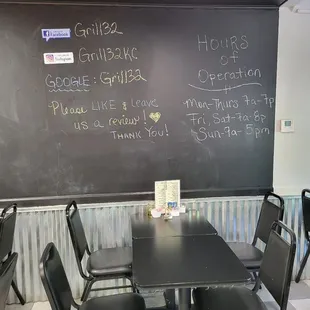 Find us on Facebook
Grill32
Instagram
Grill32KC
GOOGLE: Grill32
Please LIKE & leave
us a review!
THANK YOU!
HOURS
of
Operation
Mon-Thurs 7a-7p
Fri, Sat-7a-8p
Sun-7a-5pm